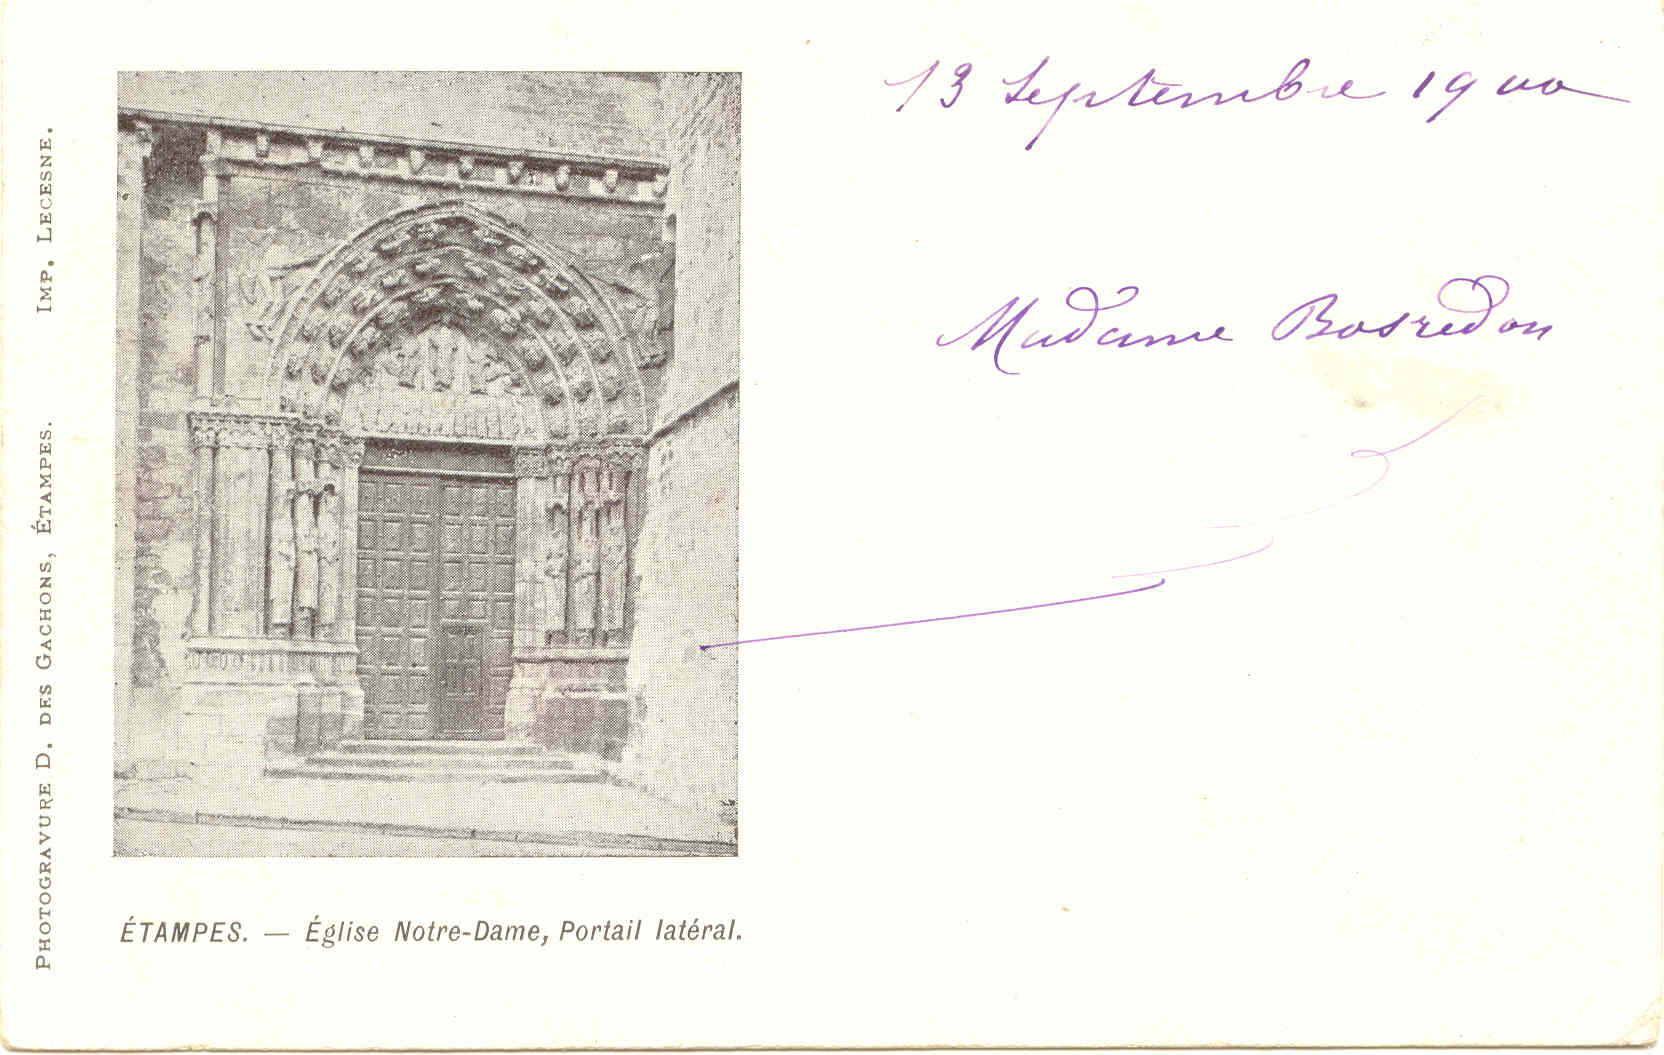 13 Septembre 1900
Madame Bosredon
PHOTOGRAVURE D. DES GACHONS, ÉTAMPES. IMP. LECESNE.
ÉTAMPES. — Église Notre-Dame, Portail latéral.